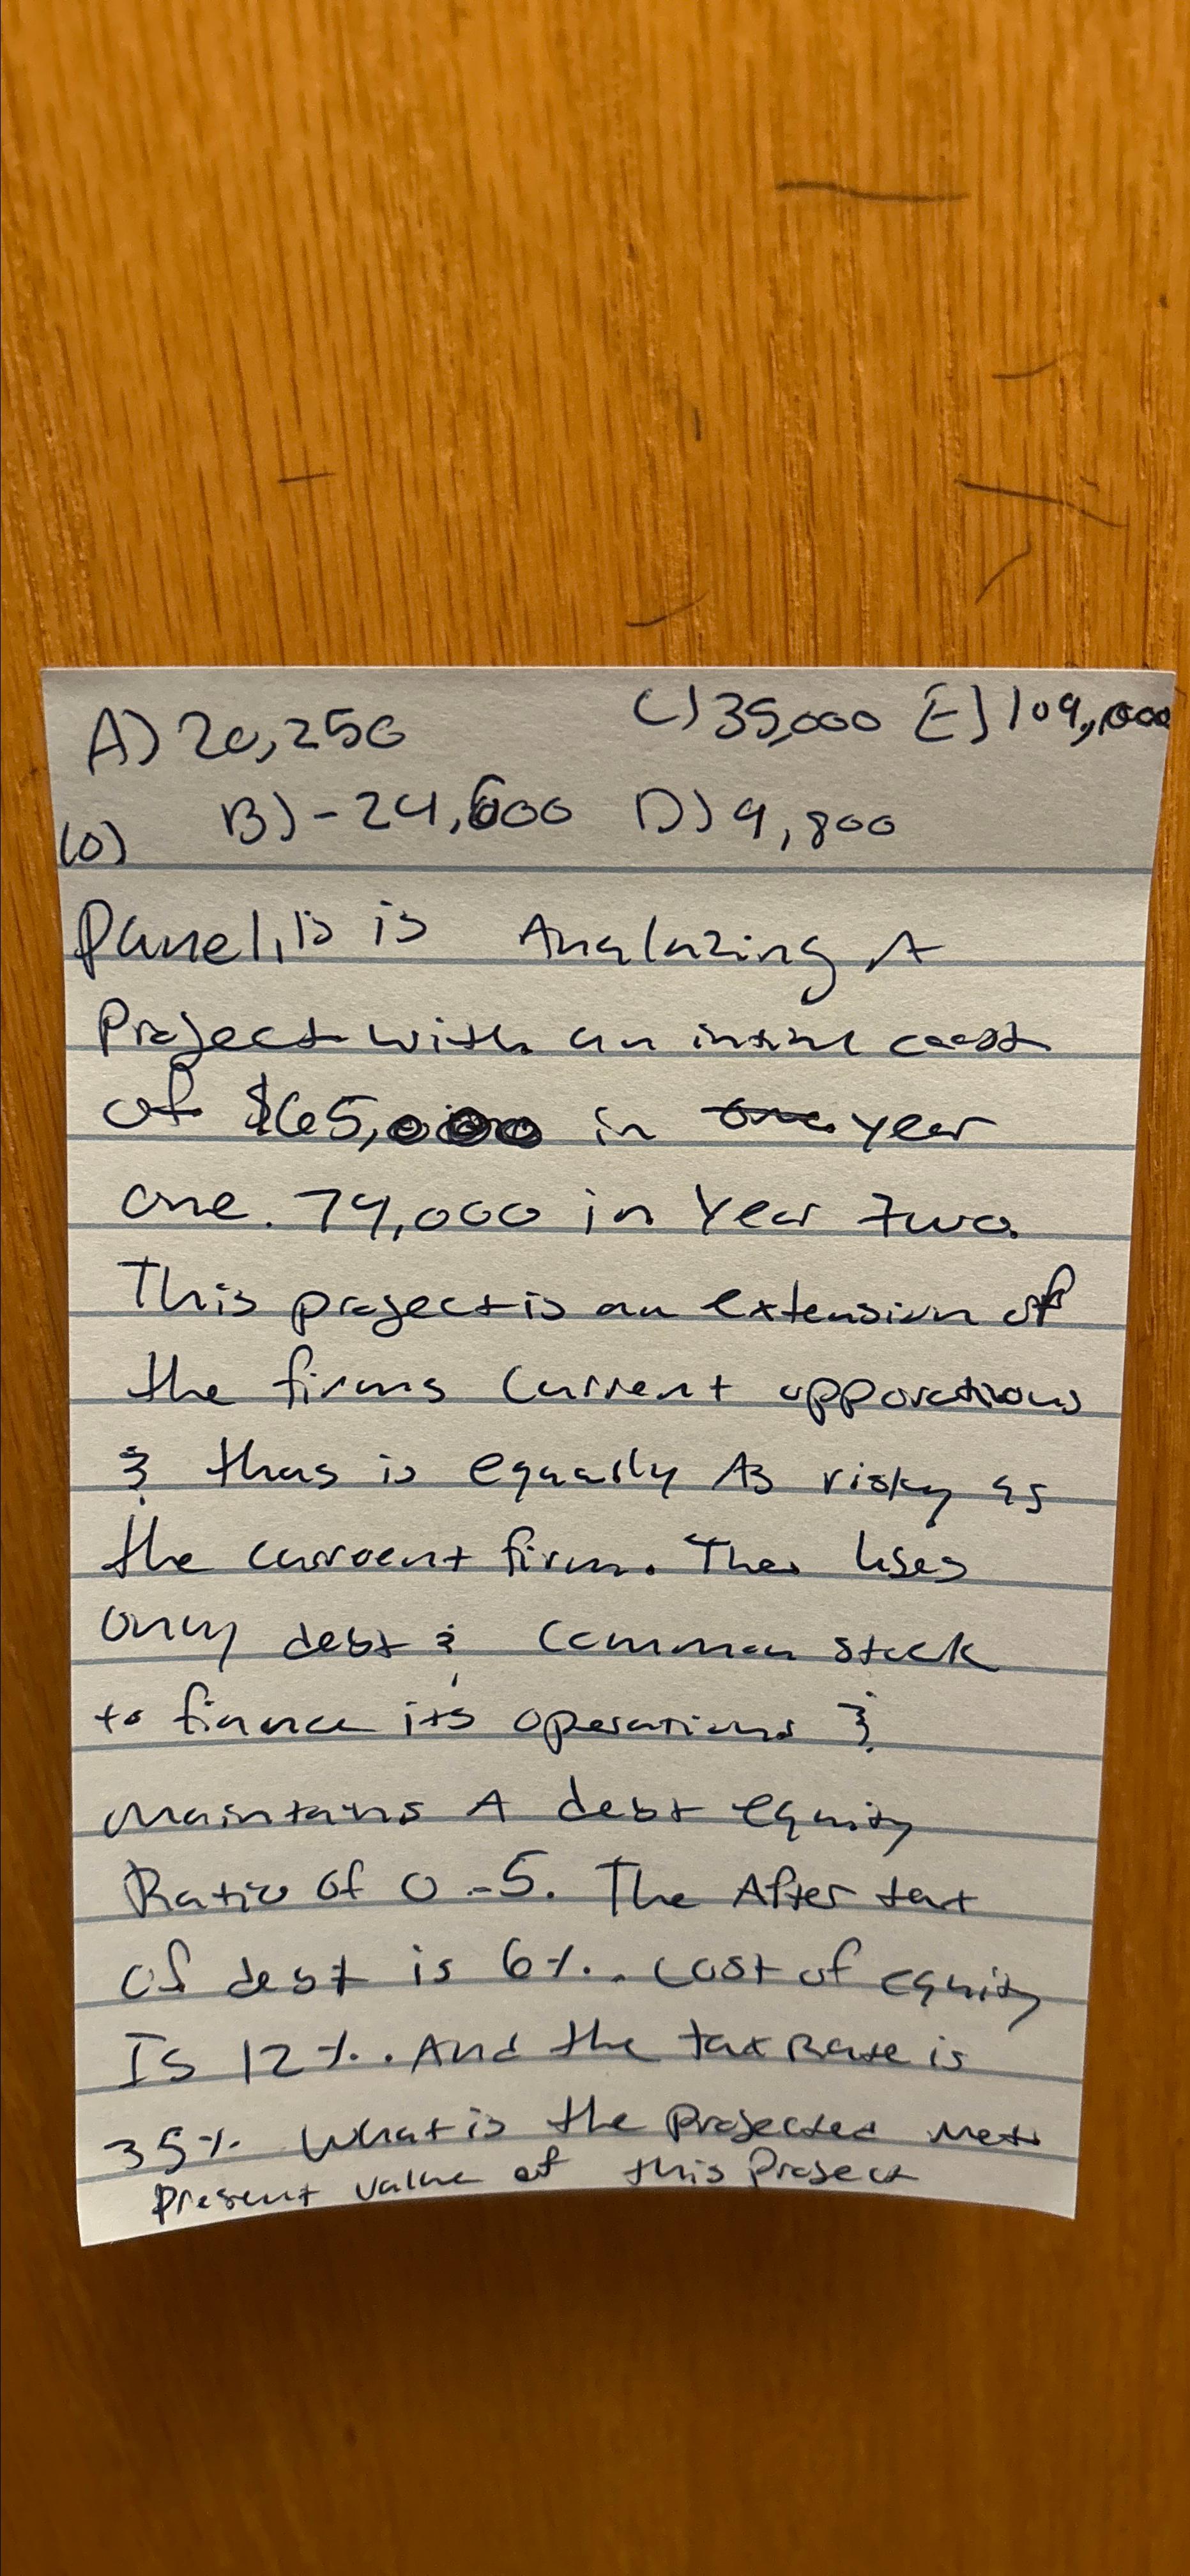 A) 20,250 C) 35,000 E) 109,000
B) -24,600 D) 9,800
10)
Panelli's is Analazing A
Project with an cost
of $65,000 in year
one. 74,000 in Year two.
This project is an extension of
the firms current opporations
& thus is equally As risky as
the current firm. The uses
only debt & common stock
to finance its operations &
Maintains A debt equity
Ratio of 0.5. The After tax
of debt is 6%. cost of equity
Is 12%. And the tax Rate is
35% What is the Projected Net
Present value of this Project